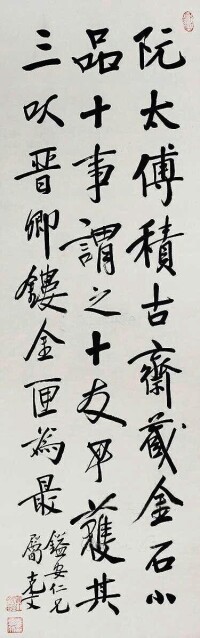 阮太傅積古齋藏金石小
品十事謂之十友予獲其
三以晉卿鏤金匣為最
鎰安仁兄
屬克文